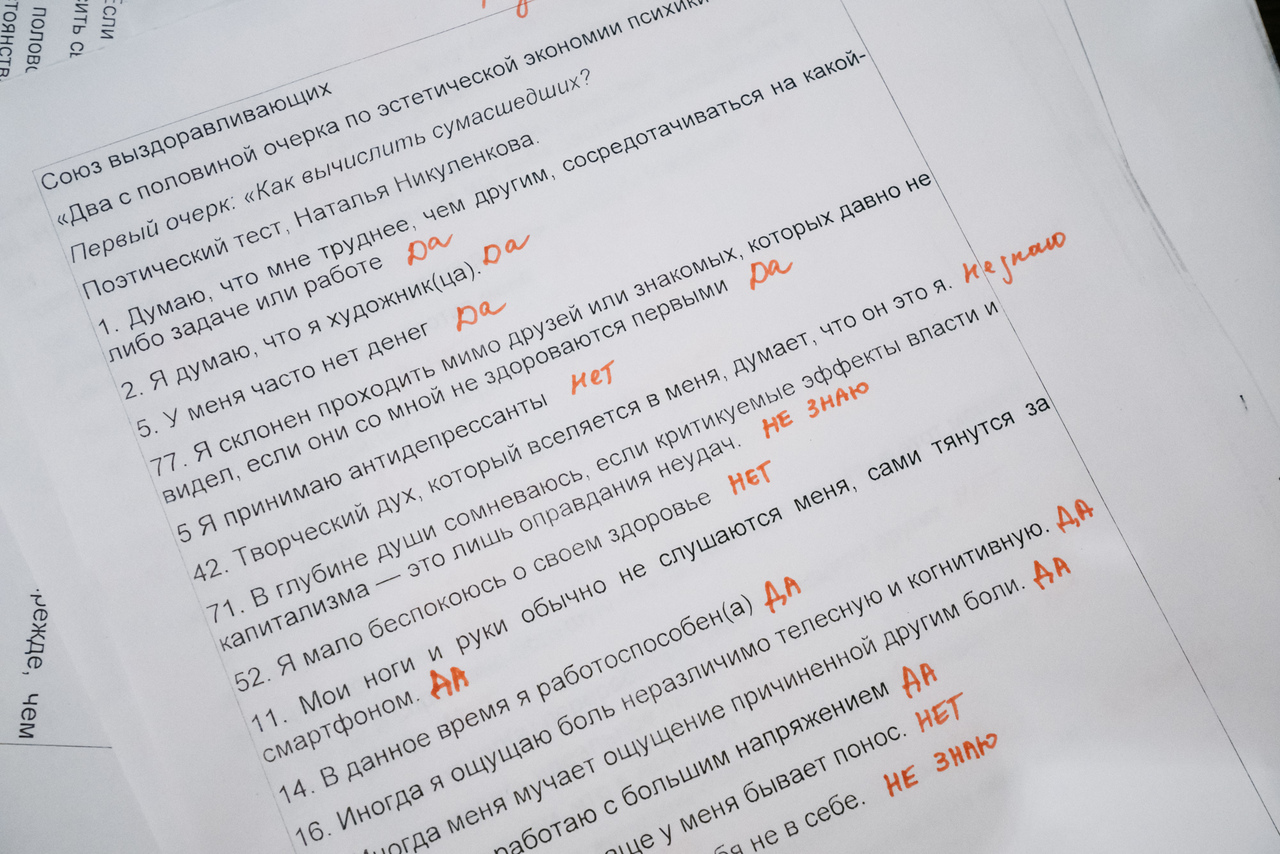 Союз выздоравливающих
«Два с половиной очерка по эстетической экономии психики
Первый очерк: «Как вычислить сумасшедших?
Поэтический тест, Наталья Никуленкова.
1. Думаю, что мне труднее, чем другим, сосредотачиваться на какой-
либо задаче или работе Да
2. Я думаю, что я художник(ца). Да
5. У меня часто нет денег Да
77. Я склонен проходить мимо друзей или знакомых, которых давно не
видел, если они со мной не здороваются первыми Да
5 Я принимаю антидепрессанты Нет
42. Творческий дух, который вселяется в меня, думает, что он это я. Не знаю
71. В глубине души сомневаюсь, если критикуемые эффекты власти и
капитализма — это лишь оправдания неудач. НЕ ЗНАЮ
52. Я мало беспокоюсь о своем здоровье НЕТ
11. Мои ноги и руки обычно не слушаются меня, сами тянутся за
смартфоном. ДА
14. В данное время я работоспособен(а) ДА
16. Иногда я ощущаю боль неразличимо телесную и когнитивную. ДА
Иногда меня мучает ощущение причиненной другим боли. ДА
работаю с большим напряжением ДА
у меня бывает понос. НЕТ
не в себе. НЕ ЗНАЮ
если
полово
сить
режде, чем